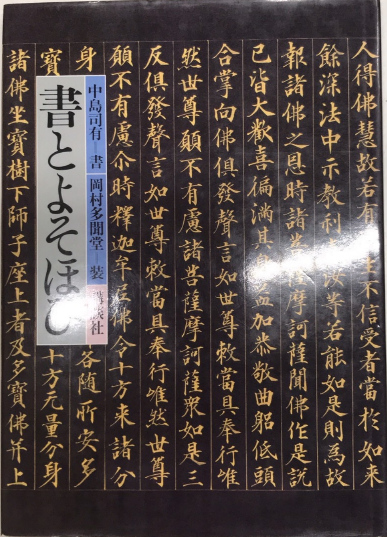 書とよそほひ
中島司有―書 岡村多聞堂―装 講談社
人得佛慧故若有生不信受者當於如來
餘深法中示教利汝等若能如是則為故
報諸佛之恩時諸菩薩摩訶薩聞佛作是説
已皆大歡喜徧滿其身益加恭敬曲躬低頭
合掌向佛俱發聲言如世尊敕當具奉行唯
然世尊願不有慮諸菩薩摩訶薩衆如是三
反俱發聲言如世尊敕當具奉行唯然世尊
願不有慮尒時釋迦牟尼佛令十方來諸分
身各随所安多
寶十方无量分身
諸佛坐寶樹下師子座上者及多寶佛并上